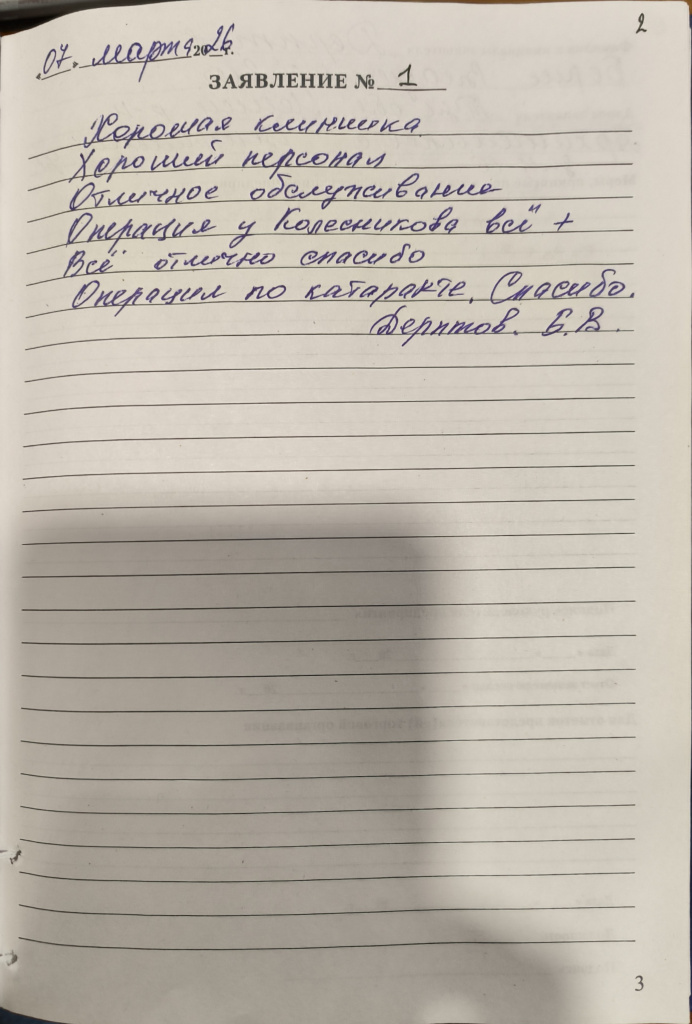 2
«07» марта 2026г.
ЗАЯВЛЕНИЕ № 1
Хорошая клиника
Хороший персонал
Отличное обслуживание
Операция у Колесникова всё +
Всё отлично спасибо
Операция по катаракте. Спасибо.
Б.В.
3